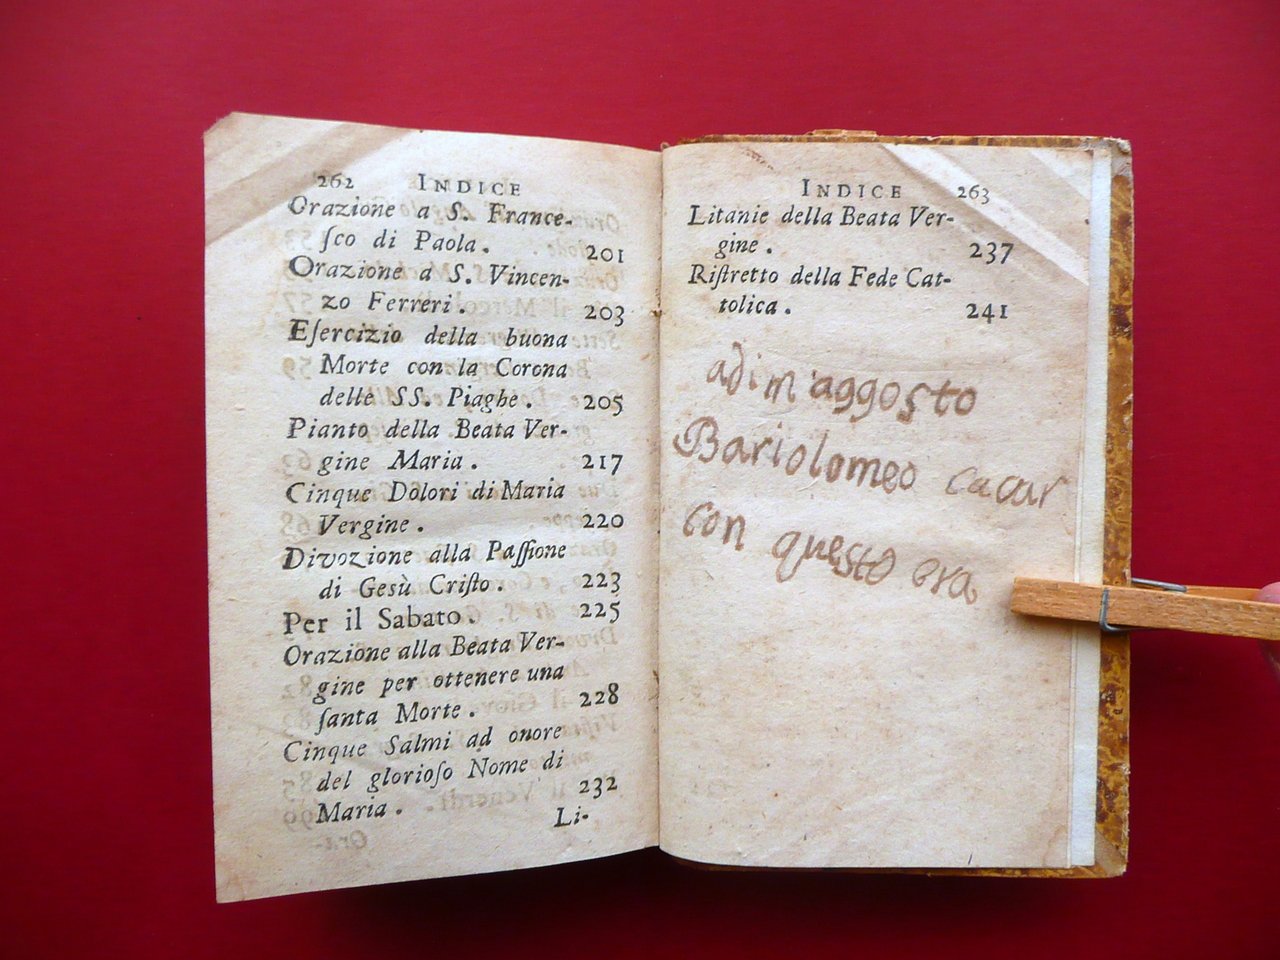 262 INDICE
Orazione a S. France-
ſco di Paola. 201
Orazione a S. Vincen-
zo Ferreri. 203
Eſercizio della buona
Morte con la Corona
delle SS. Piaghe. 205
Pianto della Beata Ver-
gine Maria. 217
Cinque Dolori di Maria
Vergine. 220
Divozione alla Paſſione
di Gesù Criſto. 223
Per il Sabato. 225
Orazione alla Beata Ver-
gine per ottenere una
ſanta Morte. 228
Cinque Salmi ad onore
del glorioſo Nome di
Maria. 232
Li-
INDICE 263
Litanie della Beata Ver-
gine. 237
Riſtretto della Fede Cat-
tolica. 241
adi m aggosto
Bariolomeo cacar
con questo ora